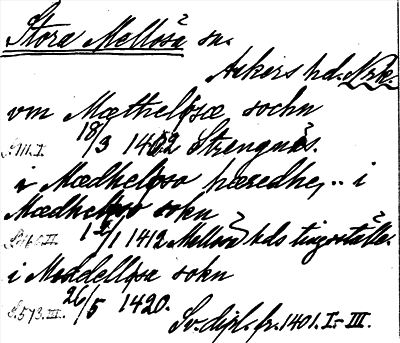 Stora Mellösa sn.
Askers hd. Nrk.
vm Mætheløsæ sochn
S. 111. I. 18/3 1402 Strengnäs.
i Mædheløso hæredhe, .. i
Mædheløso sokn
II. 1/1 1412 Mellösa hds tingställe.
i Mædelløsæ sokn
S. 573. III. 26/5 1420.
Sv. dipl. fr. 1401. I-III.